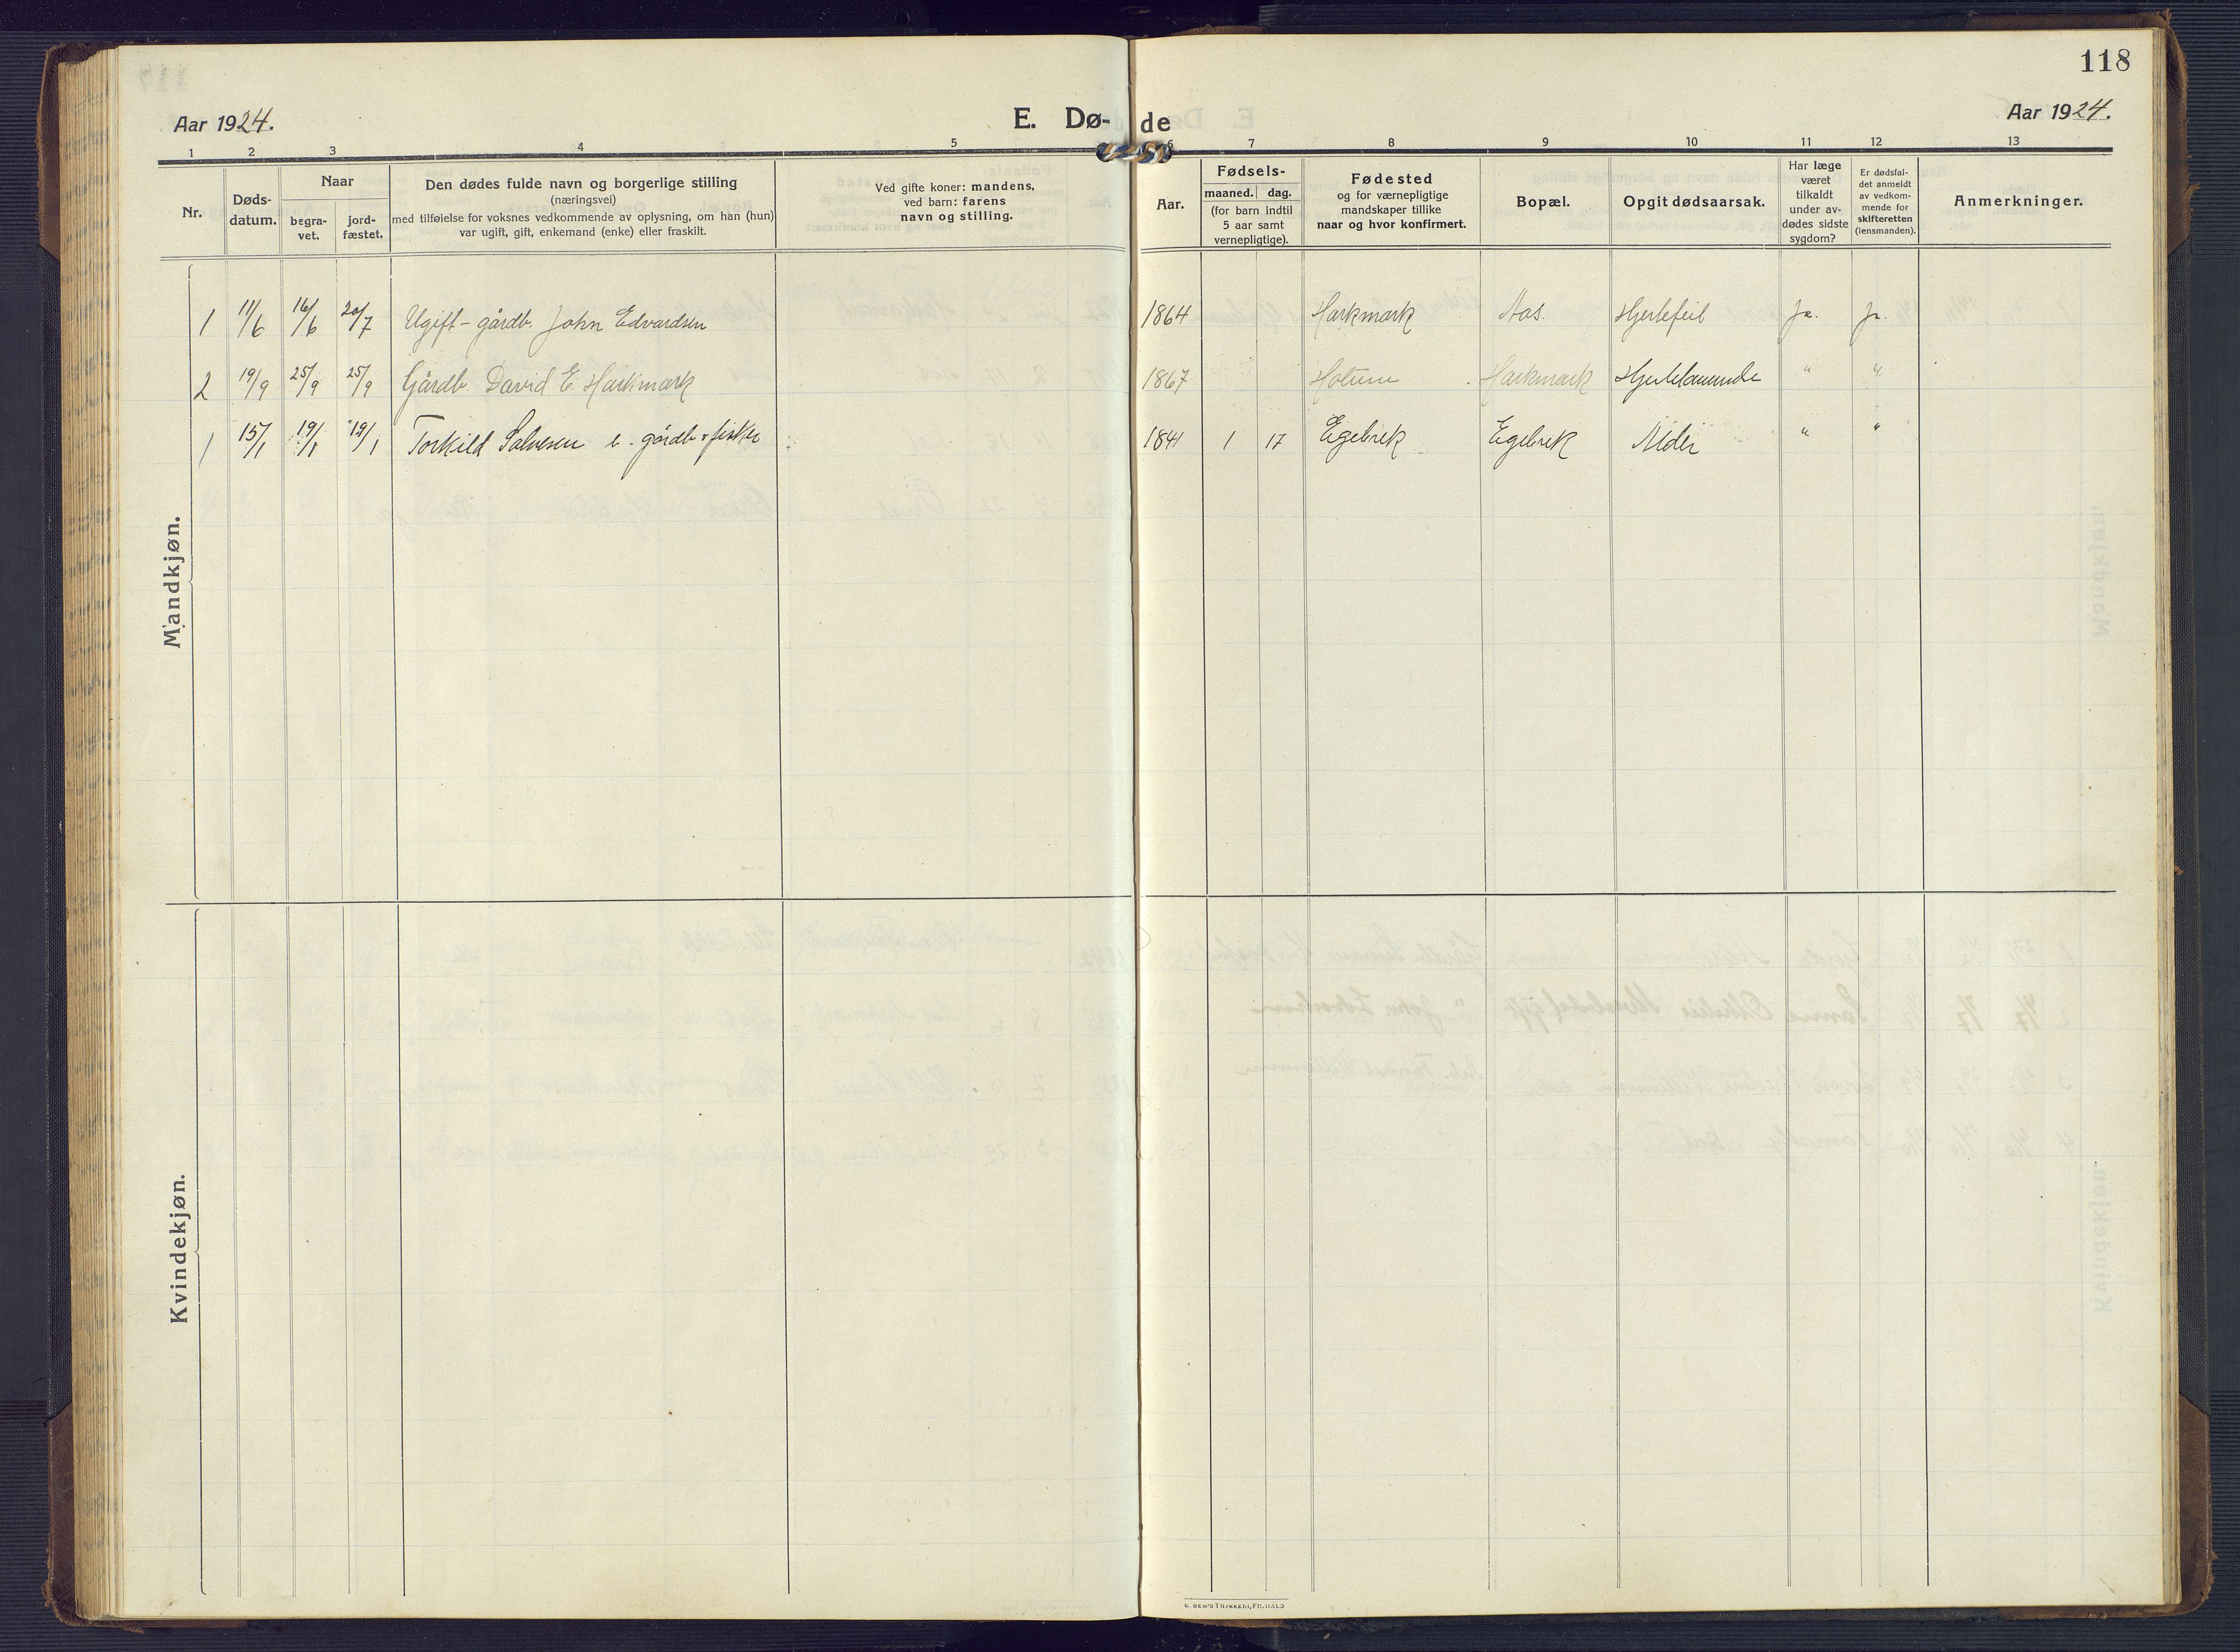 118
Aar 1924.
E. Dø-
de
Aar 1924.
1 2 3 4 5 6 7 8 9 10 11 12 13
Nr.
Døds-
datum.
Naar
begra-
vet.
jord-
fæstet.
Den dødes fulde navn og borgerlige stilling
(næringsvei)
med tilføielse for voksnes vedkommende av oplysning, om han (hun)
var ugift, gift, enkemand (enke) eller fraskilt.
Ved gifte koner: mandens,
ved barn: farens
navn og stilling.
Aar.
Fødsels-
maaned. dag.
(for barn indtil
5 aar samt
vernepligtige).
Fødested
og for værnepligtige
mandskaper tillike
naar og hvor konfirmert.
Bopæl.
Opgit dødsaarsak.
Har læge
været
tilkaldt
under av-
dødes sidste
sygdom?
Er dødsfal-
det anmeldt
av vedkom-
mende for
skifteretten
(lensmanden).
Anmerkninger.
Mandkjøn.
1 11/6 16/6 20/7 Ugift - gårdb. John Edvardsen 1864 Harkmark Aas. Hjertefeil Ja. Ja.
2 19/9 25/9 25/9 Gårdb. David E. Harkmark 1867 Holum Harkmark " "
1 15/1 19/1 19/1 Torkild Salvesen e. gårdb. + fisker 1841 1 17 Egebrek Egebrek Alder " "
Kvindekjøn.